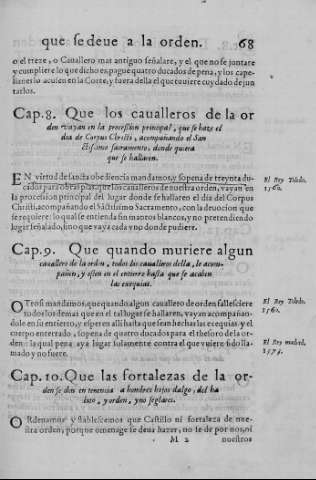 que se deue a la orden. 68
o el treze, o Cauallero mas antiguo señalare, y el que no se juntare
y cumpliere lo que dicho es, pague quatro ducados de pena, y los cape-
llanes lo acusen en la Corte, y fuera della el que tuuiere cuydado de jun
tarlos.
Cap.8. Que los caualleros de la or
den vayan en la procession principal, que se haze el
dia de Corpus Christi, acompañando el San
ctissimo sacramento, donde quiera
que se hallaren.
EN virtud de sancta obediencia mandamos, y sopena de treynta du-
cados para obras pias, que los caualleros de nuestra orden, vayan en
la procession principal del lugar donde se hallaren el dia del Corpus
Christi, acompañando el Sactissimo Sacramento, con la deuocion que
se requiere: lo qual se entienda sin mantos blancos, y no pretendiendo
lugar señalado, sino que vaya cada vno do pudiere.
El Rey Toledo.
1560.
Cap.9. Que quando muriere algun
cauallero de la orden, todos los caualleros della, le acom-
pañen, y esten en el entierro hasta que se acaben
las exequias.
OTrosi mandamos, que quando algun cauallero de orden fallesciere
todos los demas que en el tal lugar se hallaren, vayan acompañan-
dole en su entierro, y esperen alli hasta que sean hechas las exequias, y el
cuerpo enterrado, sopena de quatro ducados para el thesoro de la or-
den: la qual pena aya lugar solamente contra el que vuiere sido lla
mado y no fuere.
El Rey Toledo.
1560.
El Rey madrid.
1574.
Cap.10. Que las fortalezas de la or-
den se den en tenencia a hombres hijos dalgo, del ha
bito, y orden, y no seglares.
ORdenamos y stablescemos que Castillo ni fortaleza de nue-
stra orden, porque omenage se deua hazer, no se de por nos, ni
M 2 nuestros